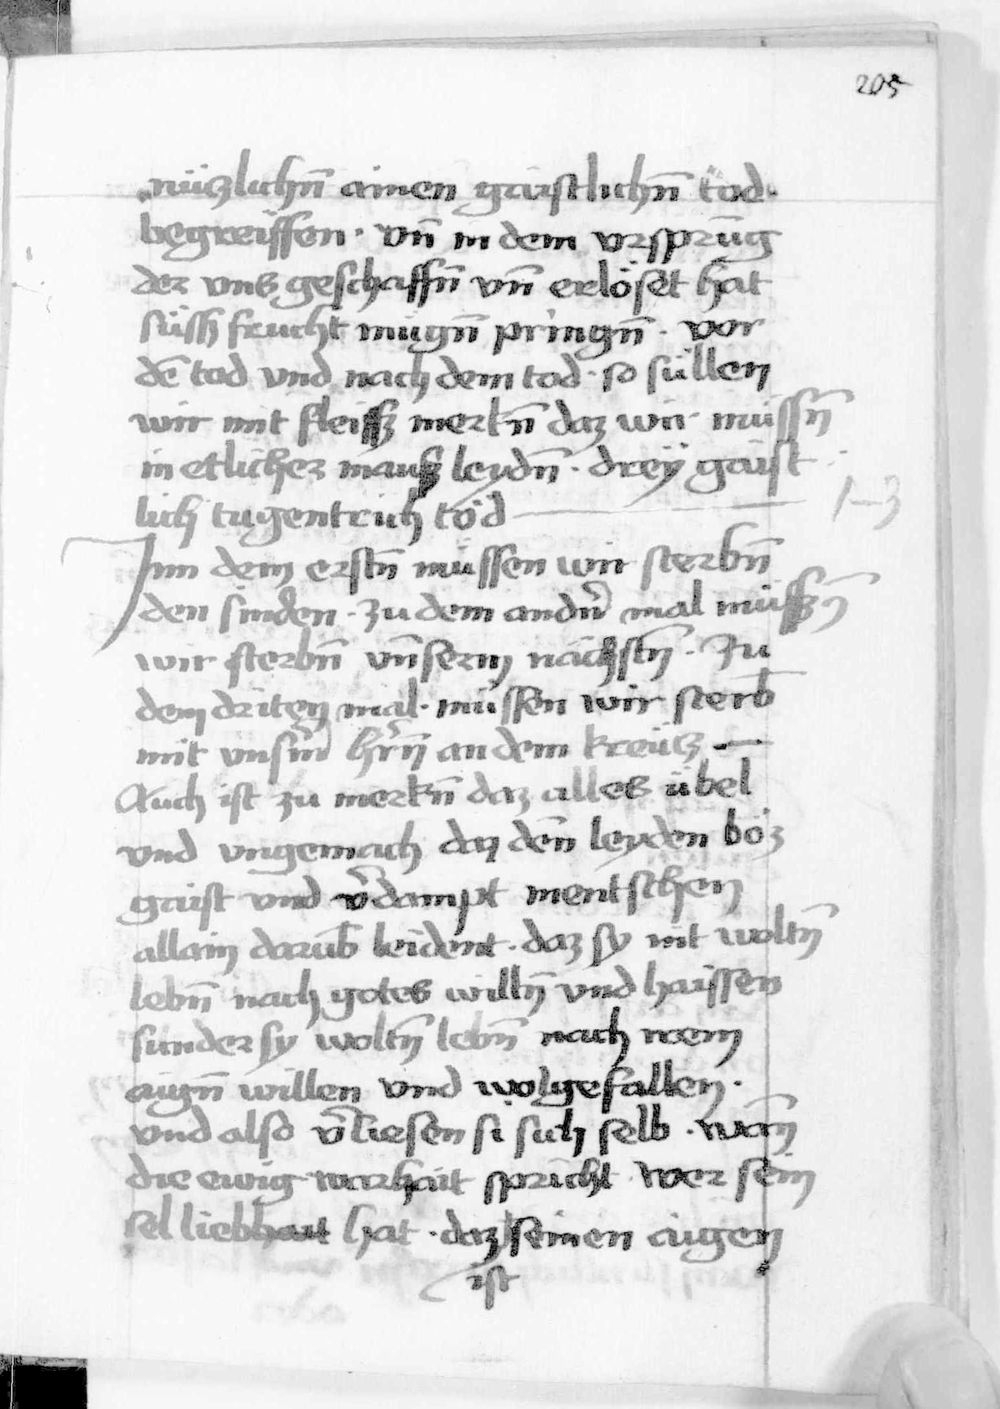 205
nüczlichn̄ ainen gaistlichn̄ tod·
begreiffen · vn̄ in dem vrsprūg
der vns geschaffn̄ vn̄ erlöset hat
süssz frucht mügn̄ pringn̄ · vor
dē tod vnd nach dem tod · so süllen
wir mit fleissz merkn̄ daz wir müssn̄
in etlicher mausz leydn̄ · dreÿ gaist
lich tugentrich töd
1–3
Inn dem erstn̄ müssen wir sterbn̄
den sinden · zu dem andn̄ mal müssn̄
wir sterbn̄ vn̄serm nächstn̄ · Zu
dem driten mal · müssen wir sterb̄
mit vnsm̄ hr̄n an dem kreücz —
Auch ist zu merkn̄ daz alles übel
vnd vngemach daz den̄ leyden böz
gaist vnd v̄dampt mentschen
allain darūb leident · daz sy nit woltn̄
lebn̄ nach gotes willn̄ vnd haissen
sunder sy woltn̄ lebn̄ nach irem
aign̄ willen vnd wolgefallen ·
vnd also v̄liesen si sich selb · wan̄
die ewig warhait spricht · wer sein
sel lieb hat · daz seinen aigen
ist